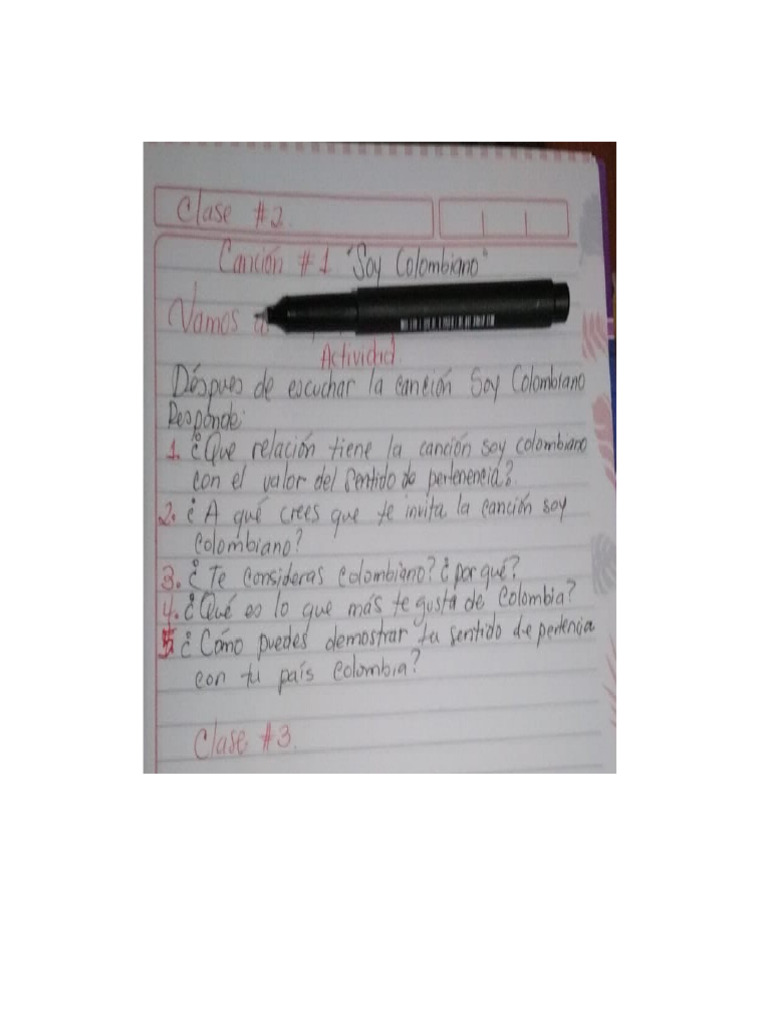 Clase #2.
Canción #1 "Soy Colombiano"
Vamos
Actividad.
Déspues de escuchar la canción Soy Colombiano
Responde:
1. ¿Que relación tiene la canción soy colombiano
con el valor del sentido de pertenencia?
2. ¿A qué crees que te invita la canción soy
colombiano?
3. ¿Te consideras colombiano? ¿por qué?
4. ¿Qué es lo que más te gusta de Colombia?
5. ¿Cómo puedes demostrar tu sentido de pertencia
con tu país Colombia?
Clase #3.